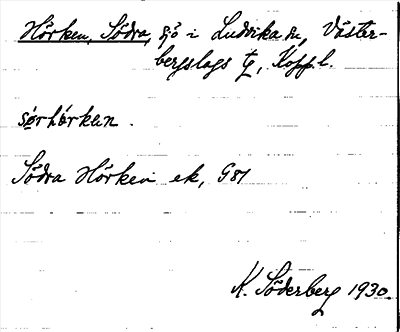 Hörken, Södra, sjö i Ludvika sn, Väster-
bergslags tg, Koppl.
sørhørkan.
Södra Hörken ek, G 81
K. Söderberg 1930.